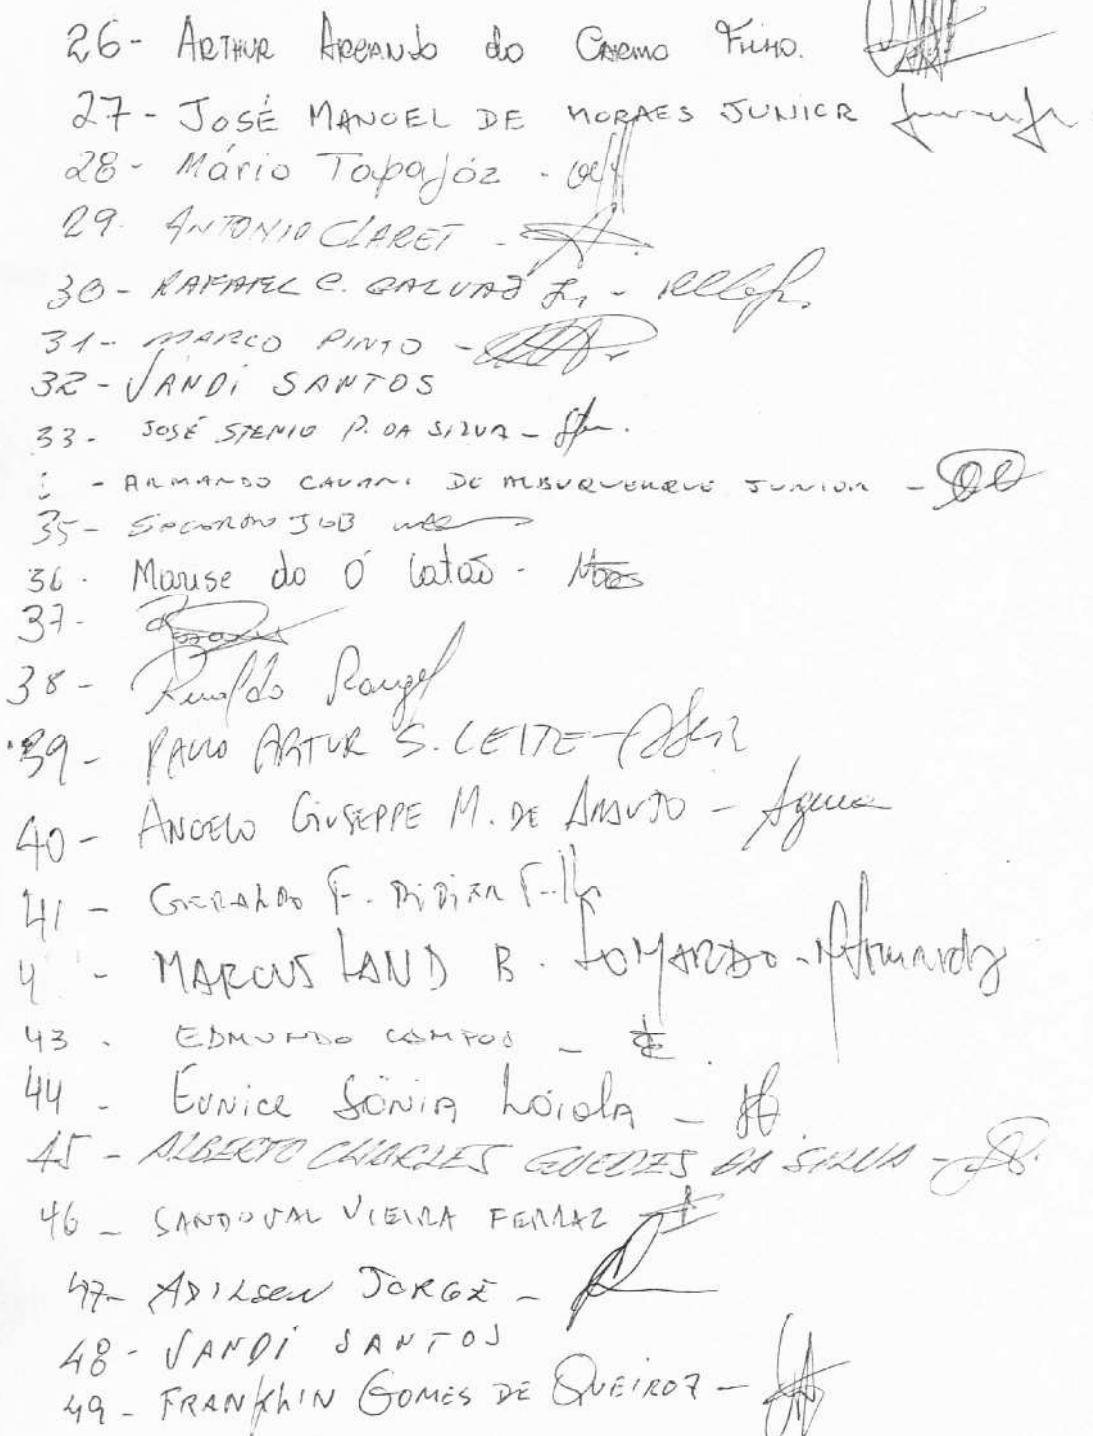 26- ARTHUR ARCANJO do CARMO FILHO.
27- JOSÉ MANOEL DE MORAES JUNIOR
28- Mário Tapajóz -
29. ANTONIO CLARET -
30- RAFAEL C. GALVAÕ Jr, -
31- MARCO PINTO -
32- VANDI SANTOS
33- JOSÉ STENIO P. DA SILVA -
- ARMANDO CAVANI DE ALBUQUERQUE JUNIOR -
35- SOCORRO JOB
36. Maruse do Ó Catão -
37-
38- Rinaldo Rangel
39- PAULO ARTUR S. LEITE -
40- ANGELO GIUSEPPE M. DE ARAUJO -
41- GERALDO F. DIDIER F.
4 - MARCUS LAND B. LOMARDO -
43. EDMUNDO CAMPOS -
44- EUNICE SÔNIA LÓIOLA -
45- ALBERTO CHARLES GUEDES DA SILVA -
46- SANDOVAL VIEIRA FERRAZ
47- ADILSON JORGE -
48- VANDI SANTOS
49- FRANKLIN GOMES DE QUEIROZ -